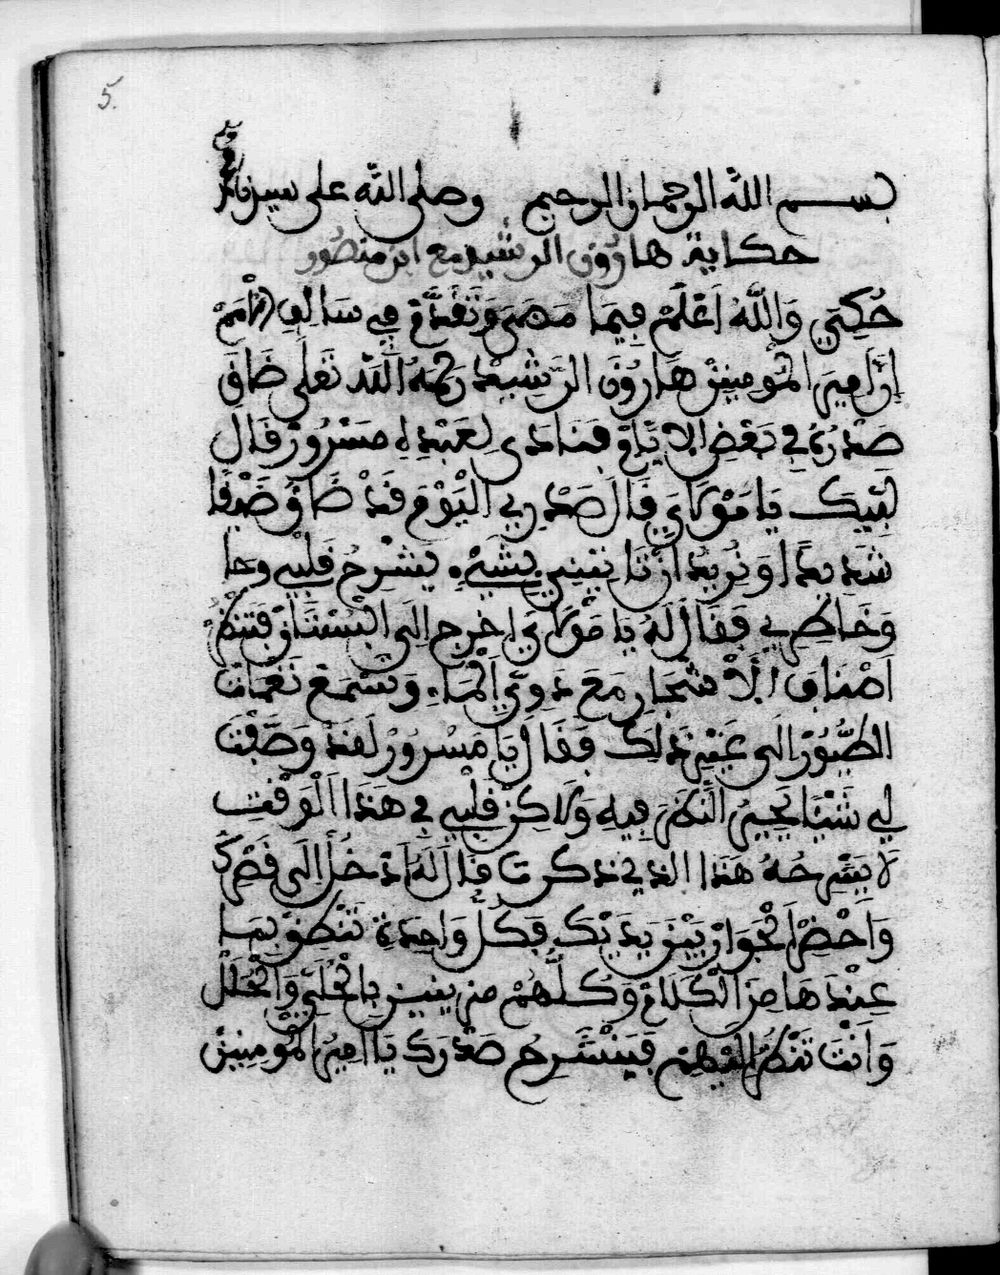 5.
بســـم الله الرحمان الرحيم وصلى الله على سيدنا محمد
حكاية هارون الرشيد مع ابن منصور
حُكِيَ وَاللَّهُ اَعْلَمْ فِيمَا مَضَى وَتَقَدَّمَ فِي سَالِفِ الْأُمَمْ
اِنَّ اَمِيرَ الْمُومِنِينْ هَارُونَ الرَّشِيدْ رَحِمَهُ اللَّه تَعَلَى ضَاقَ
صَدْرُهُ فِي بَعْضِ الايَّامْ فَنَادَى لِعَبْدِهِ مَسْرُورْ قَالَ
لَبَّيْكَ يَا مَوْلَايَ قَالَ صَدْرِي الْيَوْمَ قَدْ ضَاقَ ضَيْقًا
شَدِيدًا وَنُرِيدُ اَنْ تَاتِينِي بِشَيْءٍ يَشْرِحُ قَلْبِي وحا
وَخَاطِرِي فَقَالَ لَهُ يَا مَوْلَايَ اخرج اِلَى الْبُسْتَانْ فَتَنْظُرْ
اَصْنَافِ الْأَشْجَارِ مَعَ دَوِيِّ الْمَاءِ وَتَسْمَعْ نَغَمَاتْ
الطُّيُورْ اِلَى غَيْرِ ذَلِكْ فَقَالَ يَا مَسْرُورْ لَقَدْ وَصَفْتَ
لِي شَيْيًا يَحِيرُ النَّظَرْ فِيهِ وَلَاكِنْ قَلْبِي فِي هَذَا الْوَقْتِ
لَا يَشْرِحُهُ هَذَا الذي ذكرت قَالَ لَهُ اَدْخُلْ اِلَى قَصْرِكْ
وَاحْضِرْ الْجَوَارْ بَيْنَ يَدَيْكْ فَكُلُّ وَاحِدَةْ تَنْطِقْ بِمَا
عِنْدَهَا مِنَ الْكَلَامْ وَكُلُّهُمْ مزينين بِالْحُلِيِّ وَالْحُلَلْ
وَاَنْتَ تَنْظُرْ اليهم فَيَنْشَرِحُ صَدْرَكْ يَا اَمِيرَ الْمُومِنِينْ